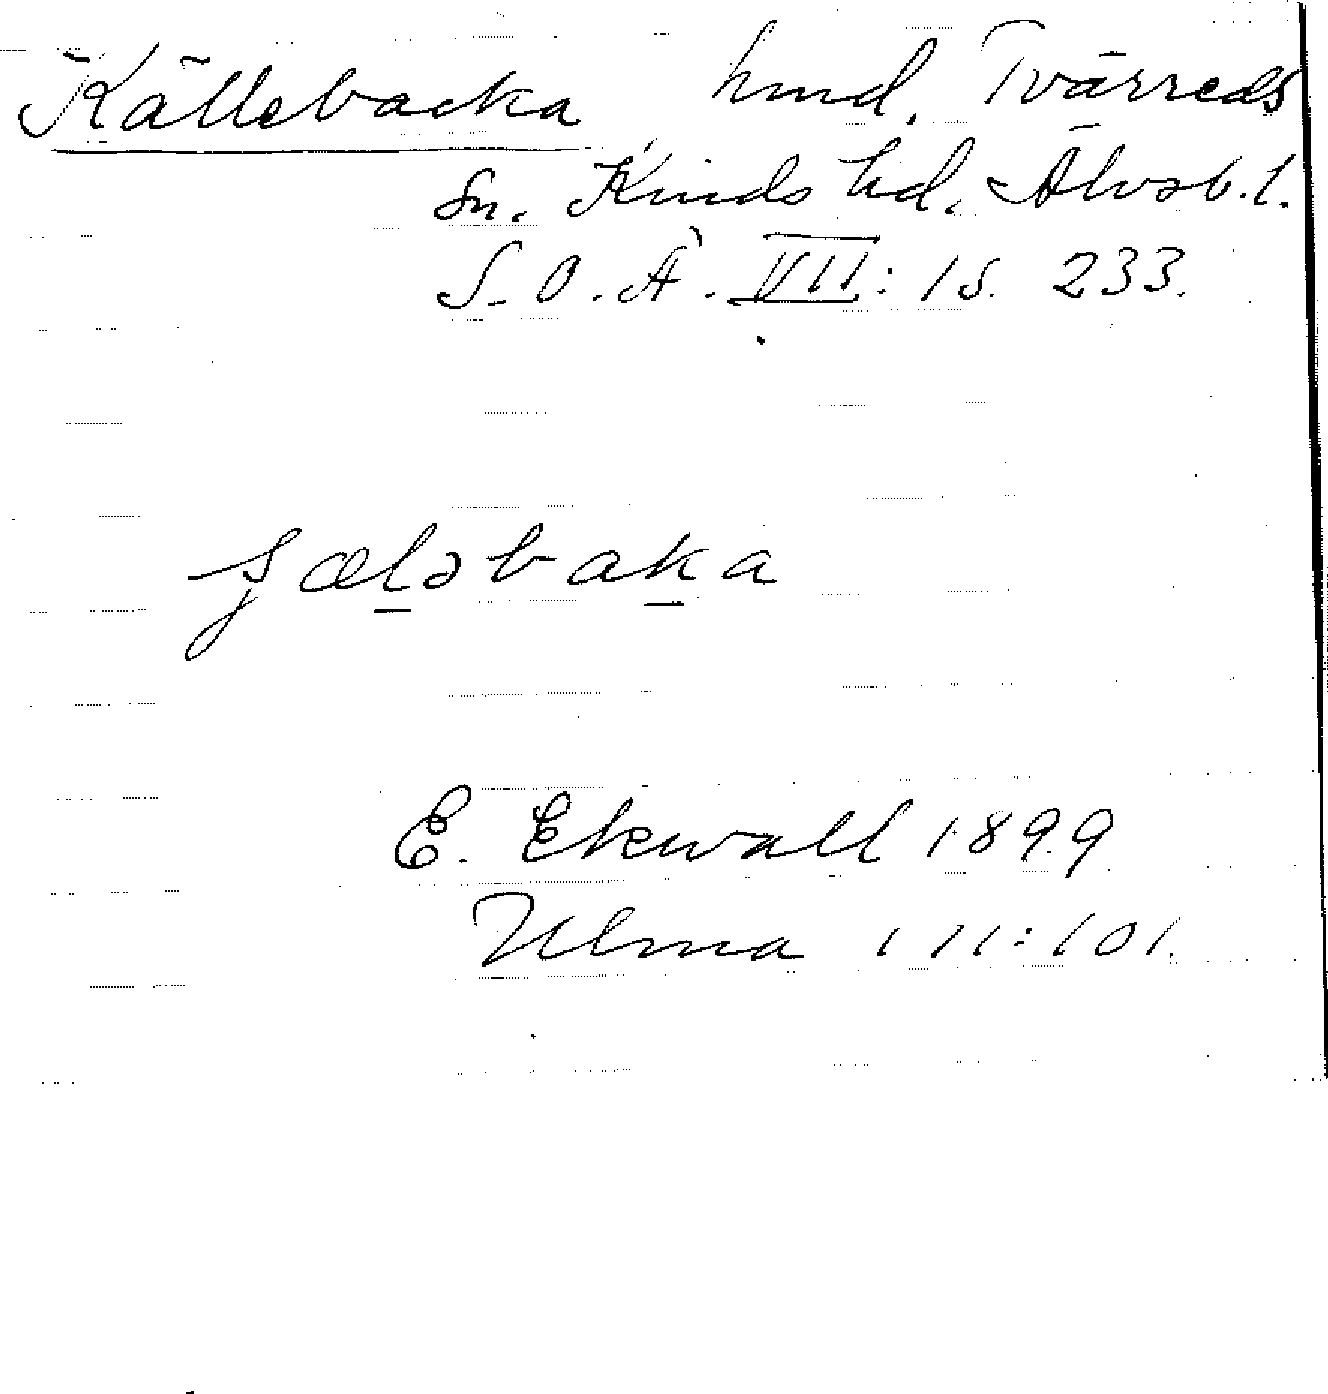 Källebacka hmd. Tvärreds
sn. Kinds hd. Älvsb. l.
S.O.Ä. VII: 1 s. 233.
E. Ekwall 1899
Ulma 111:101.